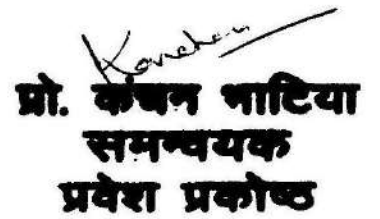 Kanchan
प्रो. कंचन भाटिया
समन्वयक
प्रवेश प्रकोष्ठ